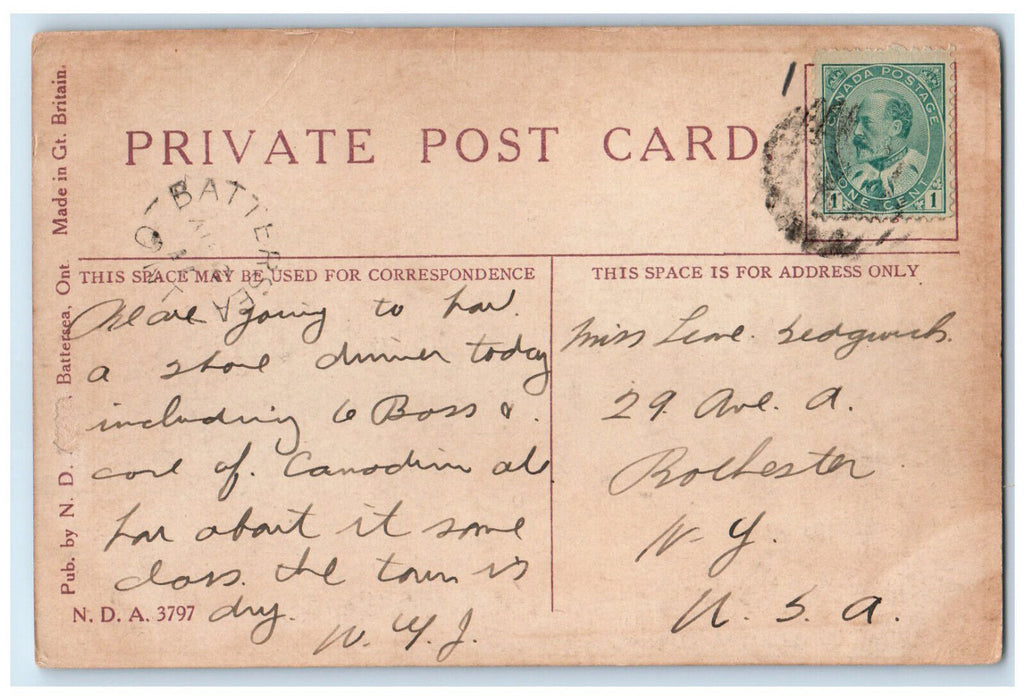 PRIVATE POST CARD
CANADA POSTAGE
ONE CENT
1 1
BATTERSEA
ONT
THIS SPACE MAY BE USED FOR CORRESPONDENCE
We are going to hav
a shore dinner today
including 6 Bass &
case of. Canadian ale
how about it some
class. the town is
dry.
W. Y. J.
THIS SPACE IS FOR ADDRESS ONLY
Miss Sedgwick.
29. Ave. A.
Rochester
N. Y.
U. S. A.
Pub. by N. D. , Battersea, Ont Made in Gt. Britain.
N. D. A. 3797